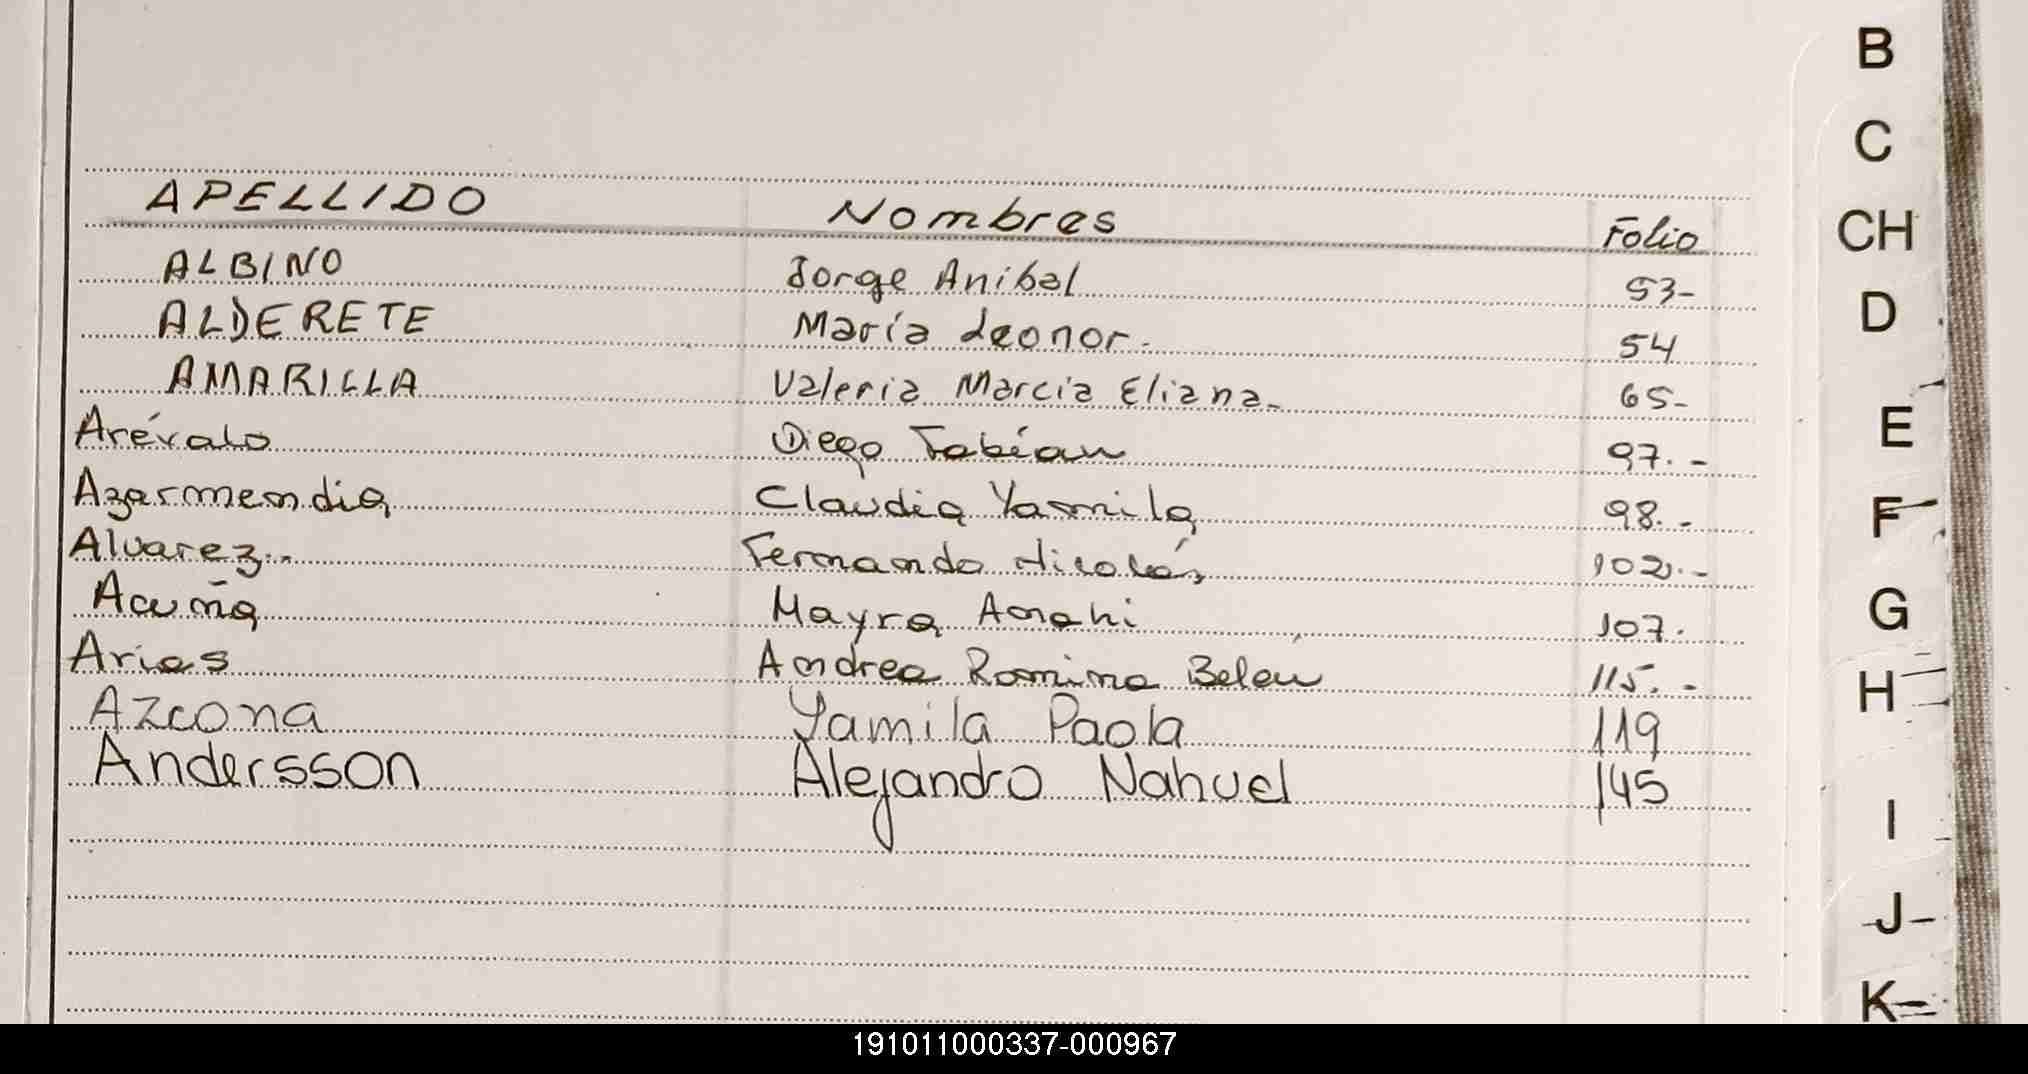 APELLIDO Nombres Folio
ALBINO Jorge Anibal 53-
ALDERETE María Leonor. 54
AMARILLA Valeria Marcia Eliana- 65-
Arévalo Diego Fabián 97.-
Azarmendia Claudia Yasmila 98.-
Alvarez.. Fernando Nicolás 102.-
Acuña Mayra Anahi 107.
Arias Andrea Romina Belén 115.-
Azcona Yamila Paola 119
Andersson Alejandro Nahuel 145
B
C
CH
D
E
F
G
H
I
J
K
191011000337-000967